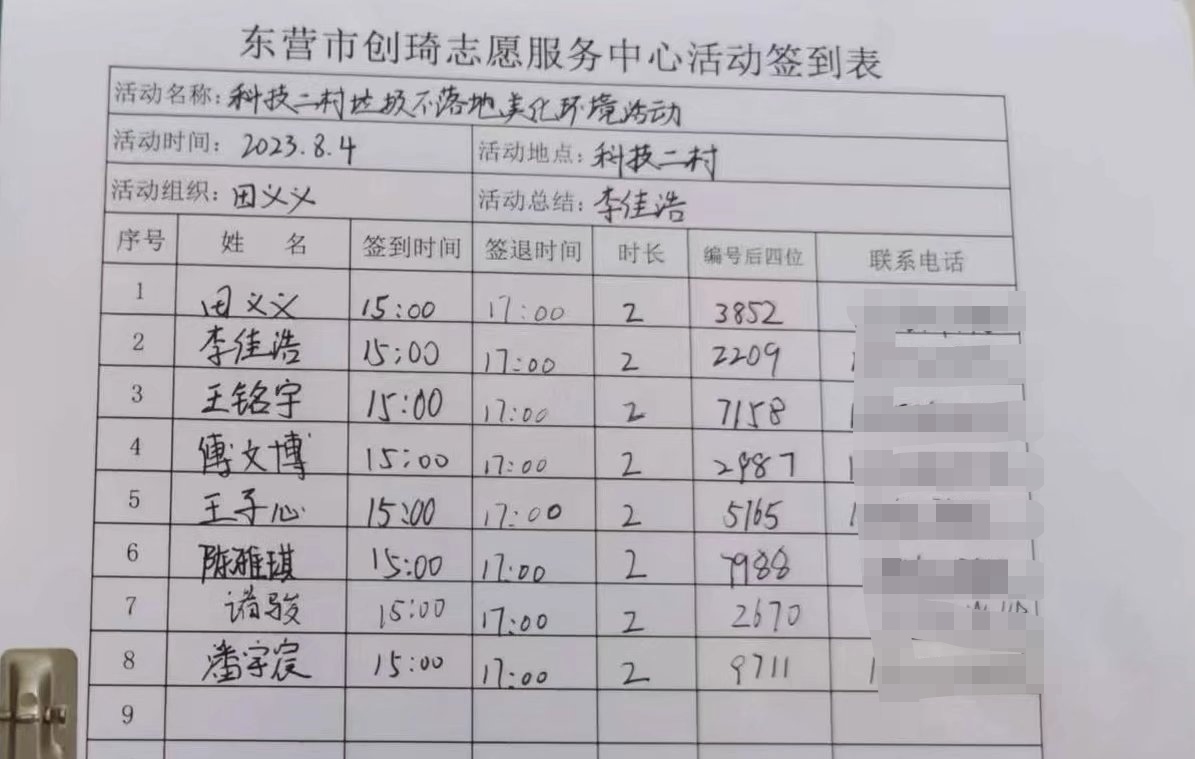 东营市创琦志愿服务中心活动签到表
活动名称：科技二村垃圾不落地美化环境活动
活动时间：2023.8.4 活动地点：科技二村
活动组织：田义义 活动总结：李佳浩
序号 姓 名 签到时间 签退时间 时长 编号后四位 联系电话
1 田义义 15:00 17:00 2 3852
2 李佳浩 15:00 17:00 2 2209
3 王铭宇 15:00 17:00 2 7158
4 傅文博 15:00 17:00 2 2987
5 王子心 15:00 17:00 2 5165
6 陈雅琪 15:00 17:00 2 7988
7 诸骏 15:00 17:00 2 2670
8 潘宇宸 15:00 17:00 2 9711
9